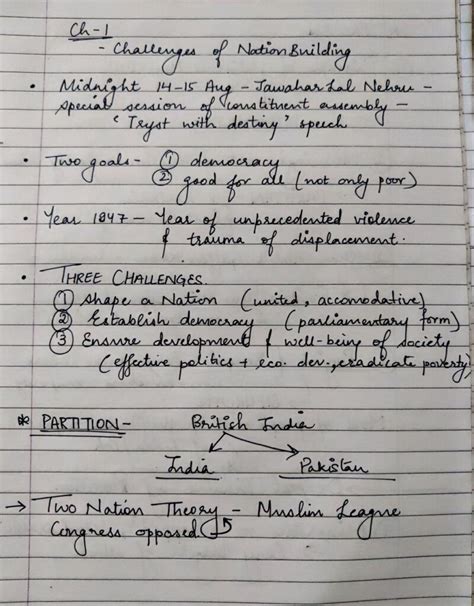 Ch-1
- Challenges of Nation Building
• Midnight 14-15 Aug - Jawahar Lal Nehru -
special session of constituent assembly -
"Tryst with destiny" speech
• Two goals - ① democracy
② good for all (not only poor)
• Year 1947 - Year of unprecedented violence
& trauma of displacement.
• THREE CHALLENGES
① shape a Nation (united, accomodative)
② Establish democracy (parliamentary form)
③ Ensure development & well-being of society
(effective politics + eco. dev., eradicate poverty)
* PARTITION - British India
India Pakistan
→ Two Nation Theory - Muslim League
Congress opposed